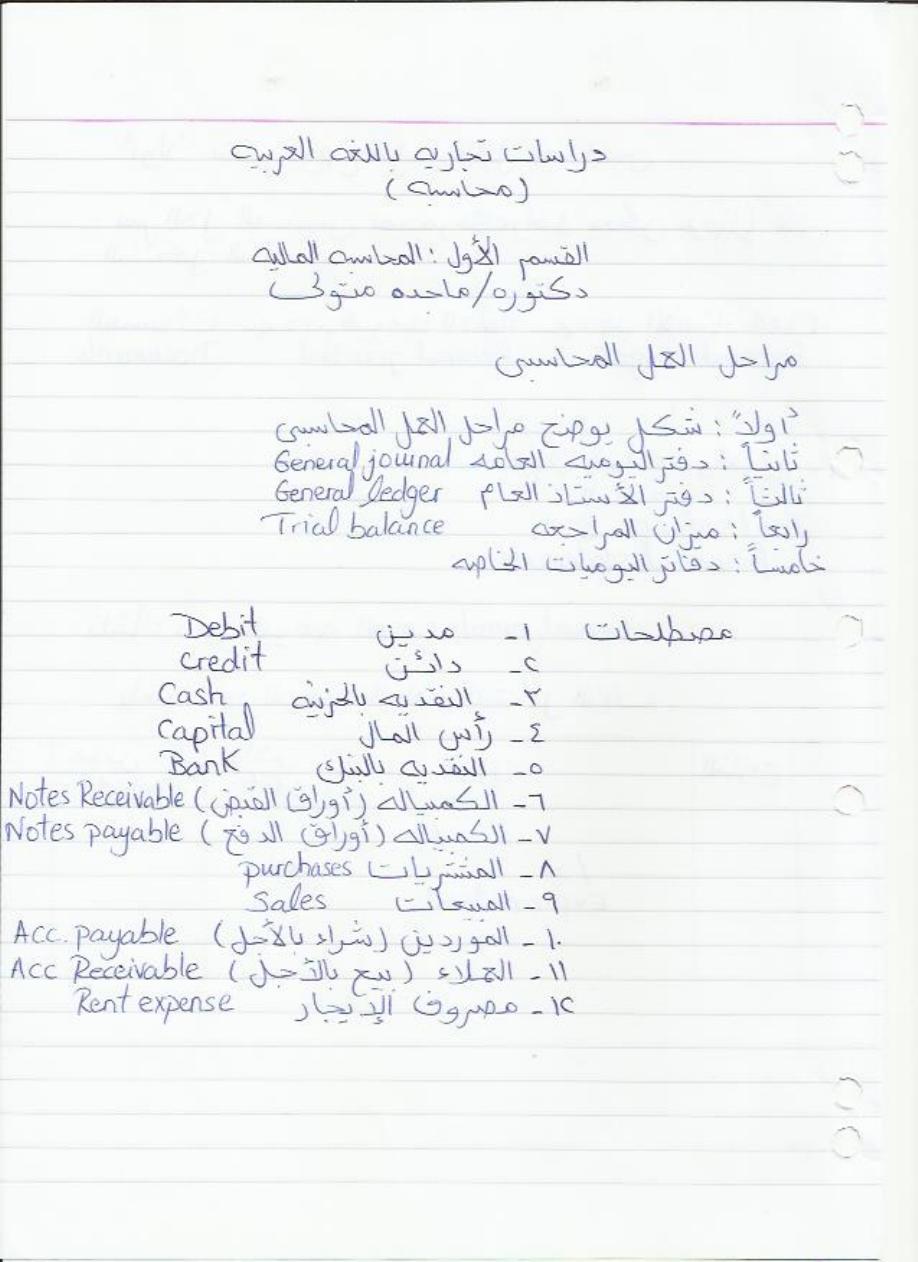 دراسات تجاريه باللغه العربيه
(محاسبه)
القسم الأول: المحاسبه الماليه
دكتوره/ماجده متولى
مراحل العمل المحاسبى
أولاً: شكل يوضح مراحل العمل المحاسبى
ثانياً: دفتر اليوميه العامه General journal
ثالثاً: دفتر الأستاذ العام General ledger
رابعاً: ميزان المراجعه Trial balance
خامساً: دفاتر اليوميات الخاصه
مصطلحات ١- مدين Debit
٢- دائن credit
٣- النقديه بالخزينه Cash
٤- رأس المال Capital
٥- النقديه بالبنك Bank
٦- الكمبياله (أوراق القبض) Notes Receivable
٧- الكمبياله (أوراق الدفع) Notes payable
٨- المشتريات purchases
٩- المبيعات Sales
١٠- الموردين (شراء بالأجل) Acc. payable
١١- العملاء (بيع بالأجل) Acc Receivable
١٢- مصروف الإيجار Rent expense